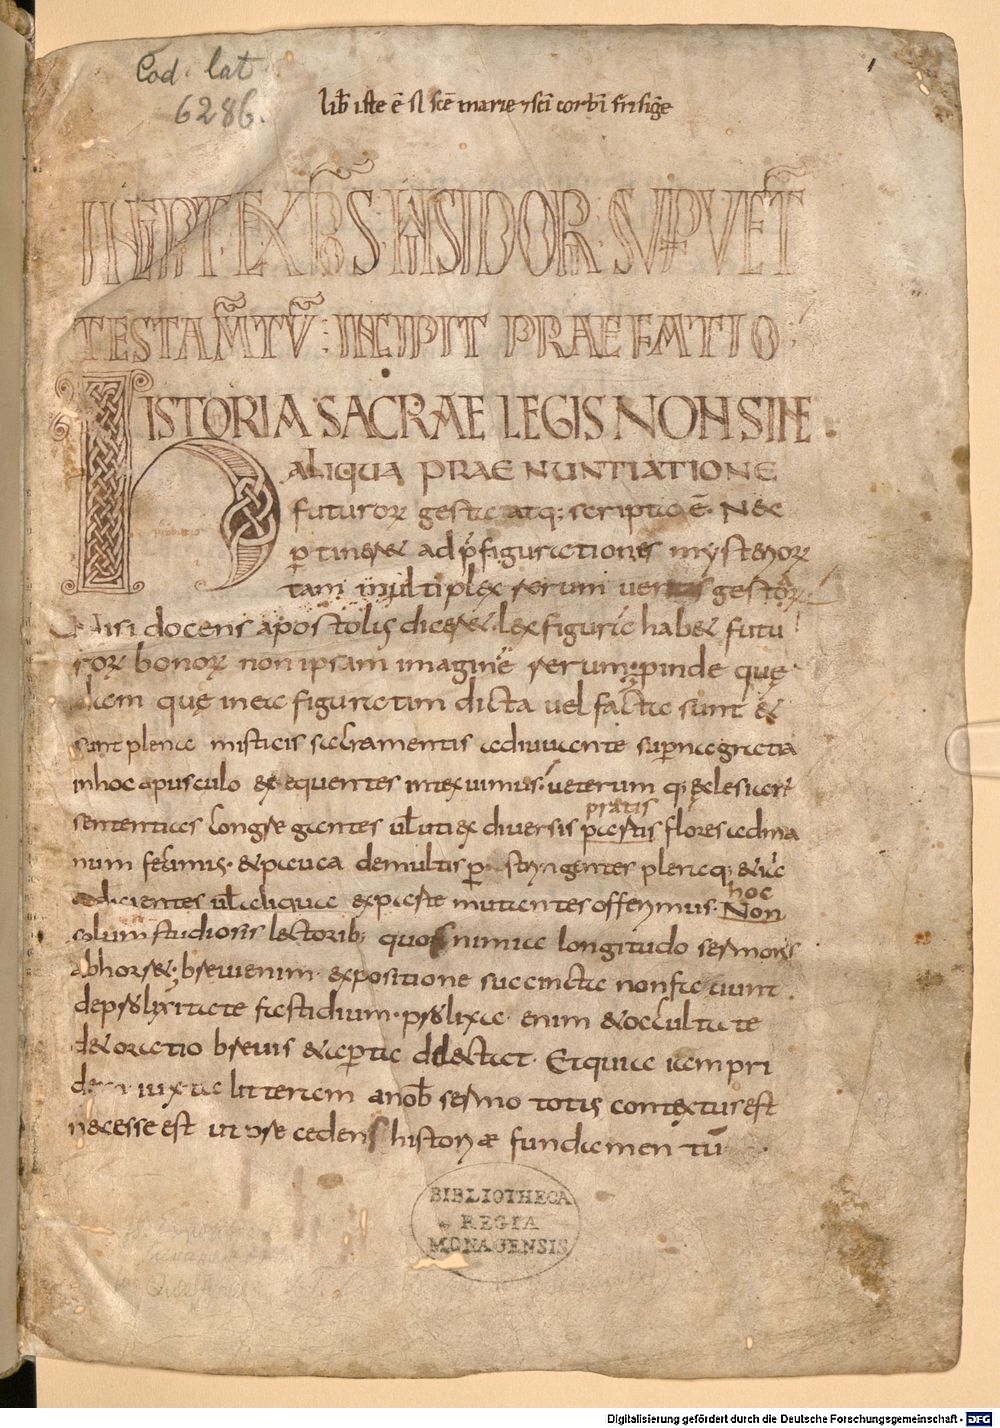 Cod. lat.
6286.
1
lib̄ iste ē sc̄e marie ⁊ sc̄i corb̄i frisiḡe
INCIPT · EXPOS · HISIDOR · SUP VET
TESTAM̄TŪ : INCIPIT PRAEFATIO
HISTORIA SACRAE LEGIS NON SINE
ALIQUA PRAENUNTIATIONE
futuror gesta atq; scripta ē · Nec
ꝑtineret ad p̄figurationes mysterior
tam multiplex rerum gestor
Nisi docens apostolus diceret · lex figurā habet futu
ror bonor non ipsam imaginē rerum; ꝓinde quę
dam quę in ea figuratim dicta vel facta sunt &
sunt plena misticis sacramentis adiuvante suꝑna gratia
in hoc opusculo exequentes intexuimus · veterum q; ęclesiar
sententias congregantes ul̄ uti ex diversis pratis
paestis flores ad ma
num fecimus · & pauca de multis ꝑstringentes pleraq; etiā
adicientes ul̄ aliqua ex parte mutantes offerimus · hoc
Non
solum studiosis lectorib; quos nimia longitudo sermonis
abhorret; brevi enim expositione succincta non faciunt
de prolixitate fastidium · prolixa enim & occulta te
det oratio brevis & aꝑta delectat · Et quia iam pri
dem iuxta litteram a nob̄ sermo totus contextus est
necesse est ut precedens historiæ fundamentū
BIBLIOTHECA
REGIA
MONACENSIS
Digitalisierung gefördert durch die Deutsche Forschungsgemeinschaft - DFG